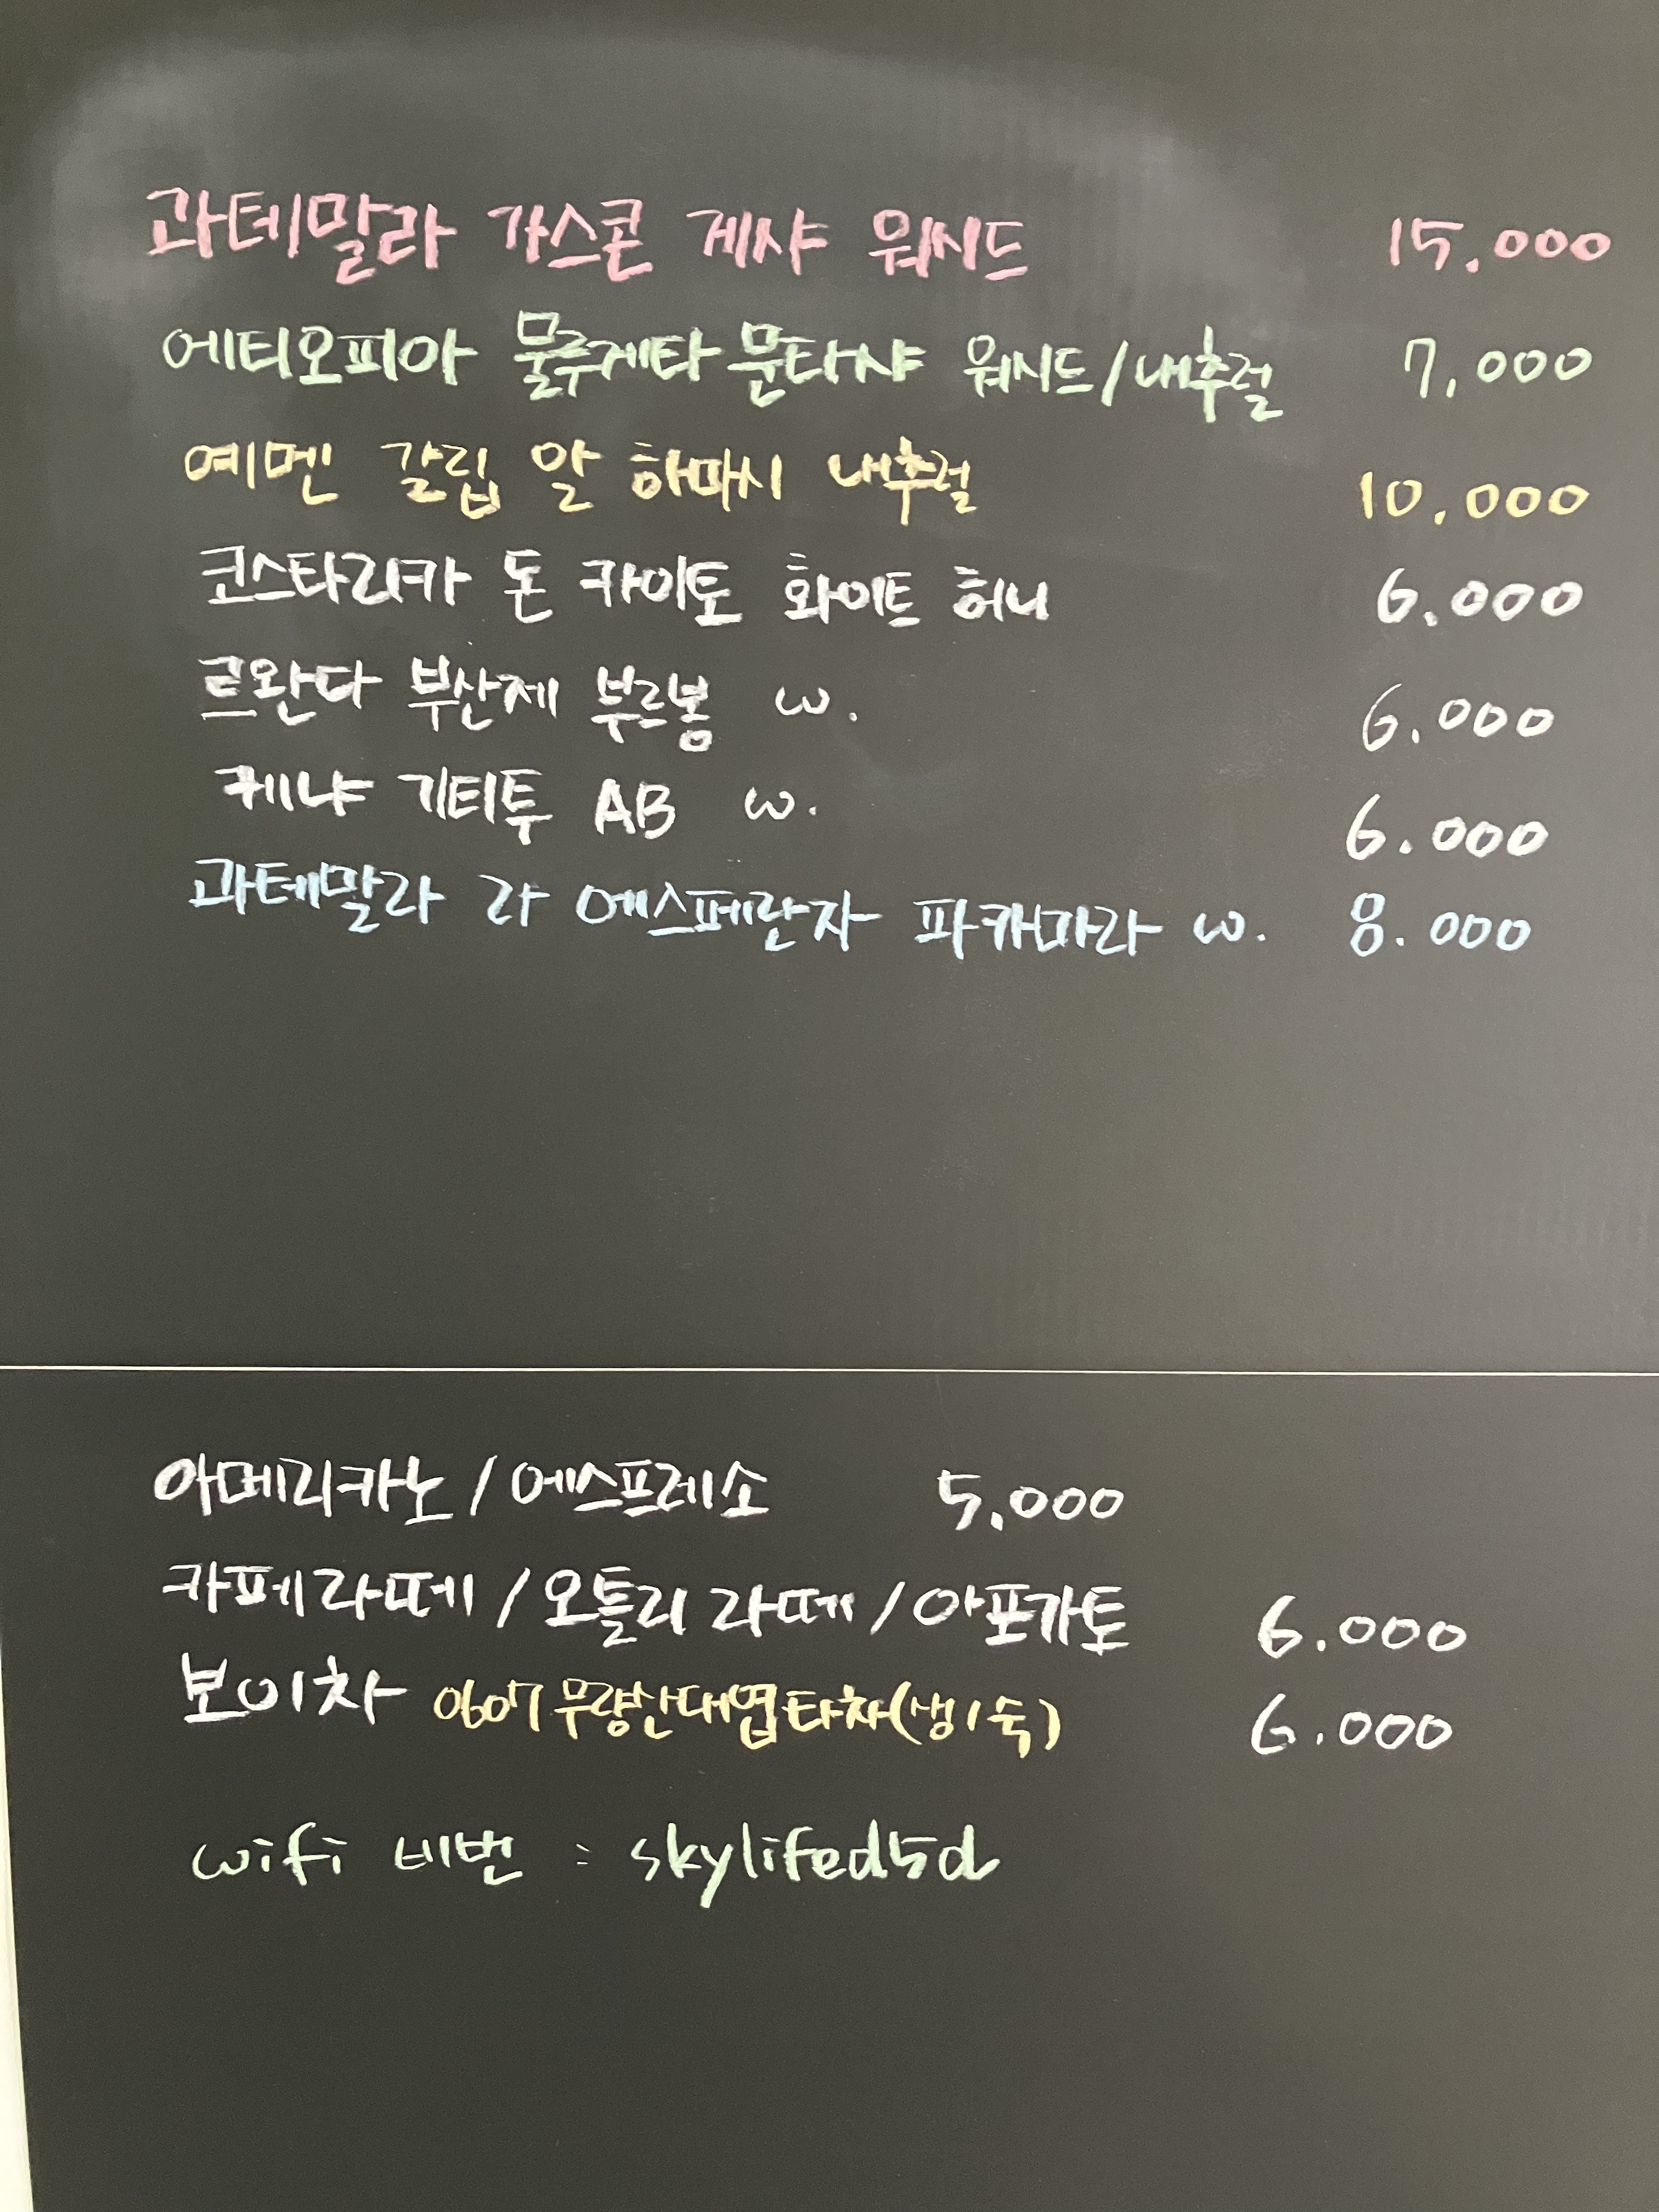 과테말라 가스콘 게샤 워시드 15.000
에티오피아 물루게타 문타샤 워시드/내추럴 7,000
예멘 갈립 알 하마시 내추럴 10.000
코스타리카 돈 카이토 화이트 허니 6.000
르완다 부산제 부르봉 w. 6.000
케냐 기티투 AB w. 6.000
과테말라 라 에스페란자 파카마라 w. 8.000
아메리카노/에스프레소 5.000
카페라떼/오틀리 라떼/아포가토 6.000
보이차 0607무량산대엽타차(생/숙) 6.000
wifi 비번 : skylifed5d